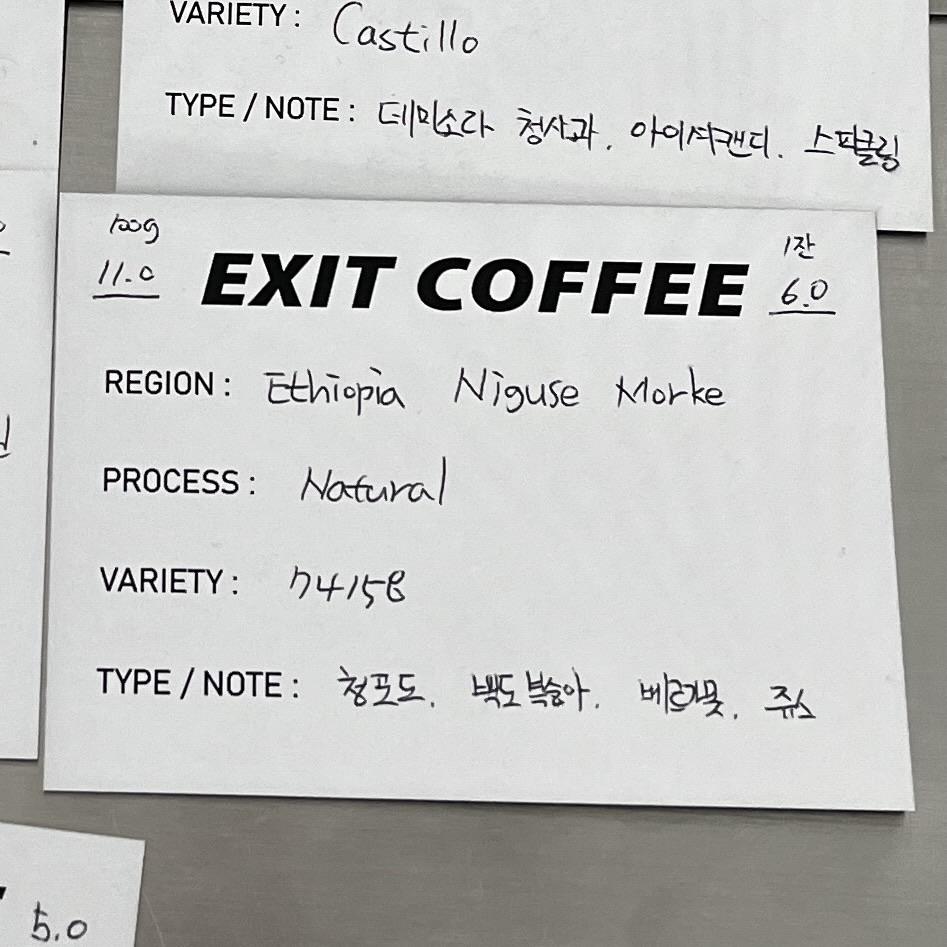 VARIETY : Castillo
TYPE / NOTE : 데미소다 청사과, 아이셔캔디. 스파클링
100g
11.0
EXIT COFFEE
1잔
6.0
REGION : Ethiopia Niguse Morke
PROCESS : Natural
VARIETY : 74158
TYPE / NOTE : 청포도, 백도복숭아, 베르가못, 쥬스
5.0